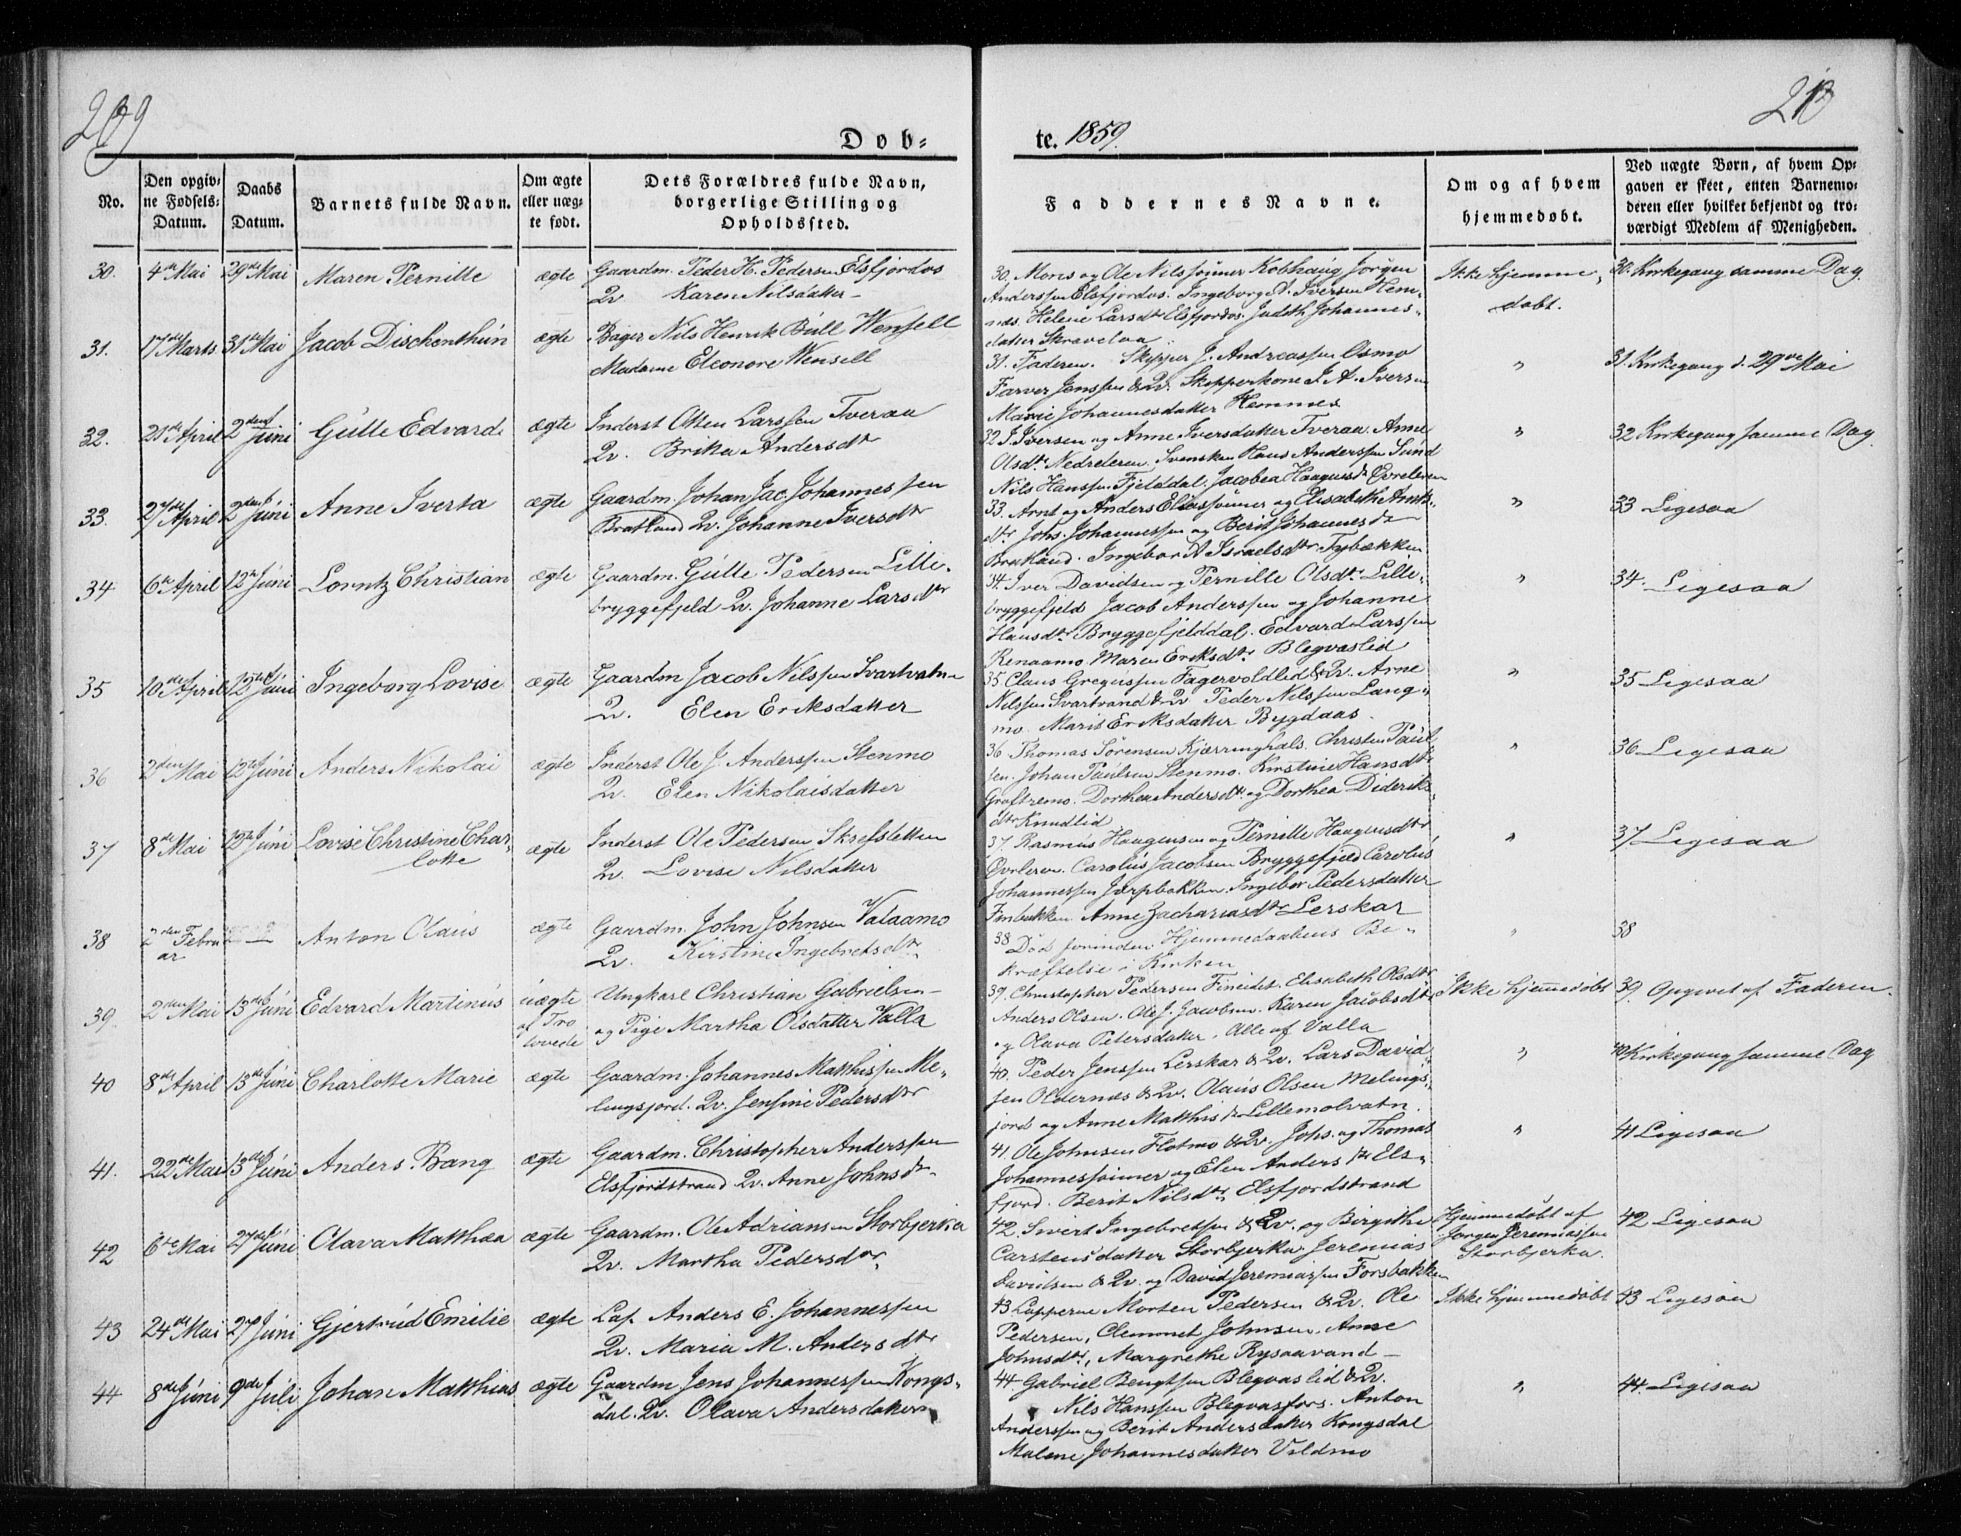 209
210
Døb-
te. 1859.
No.
Den opgiv-
ne Fødsels-
Datum.
Daabs
Datum.
Barnets fulde Navn.
Om ægte
eller uæg-
te født.
Dets Forældres fulde Navn,
borgerlige Stilling og
Opholdssted.
Faddernes Navne.
Om og af hvem
hjemmedøbt.
Ved uægte Børn, af hvem Op-
gaven er skeet, enten Barnemo-
deren eller hvilket bekjendt og tro-
værdigt Medlem af Menigheden.
30. 4de Mai 29de Mai Maren Pernille ægte Gaardm. Peder H. Pedersen Elsfjordos
Qv. Karen Nilsdatter
30. Mons og Ole Nilssønner Kobhaug Jørgen
Anderssen Elsfjordos. Ingeborg A. Iversen Hem-
næs. Helene Larsdtr Elsfjordos. Judith Johannes-
datter Skravelaa
Ikke hjemme-
døbt.
30. Kirkegang samme Dag.
31. 17de Marts 31te Mai Jacob Dischenthun ægte Bager Nils Henrik Bull Wensell
Madame Eleonore Wensell
31. Faderen. Skipper J. Andreassen Osmo
Farver Jenssen & Qv. Skipperkone J. A. Iversen
Marie Johannesdatter Hemnes
"
31. Kirkegang d. 29de Mai
32. 21de April 2den Juni Gulle Edvard ægte Inderst Olten Larssen Tveraa
Qv. Brika Andersdtr
32. I. Iversen og Anne Iversdatter Tveraa. Anne
Olsdtr Nedreleren, Svensken Hans Anderssen Sund
Nils Hanssen Fjelddal. Jacobea Haagensdr Øvreleren
"
32 Kirkegang samme Dag.
33. 27de April 2den Juni Anne Iverta ægte Gaardm. Johan Jac. Johannessen
Bratland Qv. Johanne Iversdtr
33. Arnt og Anders Eliassønner og Elisabeth Arnts-
dtr Johs. Johannessen og Berit Johannesdr
Bratland. Ingebor A Israelsdtr Fybækken
"
33 Ligesaa
34 6te April 12te Juni Lorntz Christian ægte Gaardm. Gulle Pedersen Lille-
bryggefjeld Qv. Johanne Larsdtr
34. Iver Davidsen og Pernille Olsdtr Lille-
bryggefjeld Jacob Anderssen og Johanne
Hansdtr Bryggefjelddal. Edvard Larssen
Renaamo Maren Eriksdtr Blegvaslid
"
34. Ligesaa
35 10de April 12te Juni Ingeborg Lovise ægte Gaardm Jacob Nilssen Svartvatn
Qv. Elen Eriksdatter
35 Claus Gregussen Fagervoldlid & Qv. Arne
Nilssen Svartvand & Qv Peder Nilssen Lang-
mo. Marit Eriksdatter Bygdaas
"
35 Ligesaa
36 2den Mai 12te Juni Anders Nikolai ægte Inderst Ole J. Anderssen Stenmo
Qv. Elen Nikolaisdatter
36 Thomas Sørensen Kjærringhals. Christen Paul-
sen. Johan Paulsen Stenmo. Kirstine Hansdtr
Grøftremo. Dorthea Andersdtr og Dorthea Dideriks-
dtr Knudlid
"
36 Ligesaa
37 8de Mai 12te Juni Lovise Christine Char-
lotte ægte Inderst Ole Pedersen Skrefsletten
Qv. Lovise Nilsdatter
37. Rasmus Haagensen og Pernille Haagensdtr
Øvrleren. Carolus Jacobsen Bryggefjeld Carolus
Johannessen Jærpbakken. Ingebor Pedersdatter
Finbakken Anne Zachariasdtr Lerskar
"
37 Ligesaa
38 2den Febru-
ar — Anton Olaus ægte Gaardm. John Johnsen Valaamo
Qv. Kirstine Ingebretsdtr
38 Død forinden Hjemmedaabens Be-
kræftelse i Kirken
"
38
39. 2den Mai 13de Juni Edvard Martinus uægte
af Tro-
lovede Ungkarl Christian Gabrielsen
og Pige Martha Olsdatter Valla
39. Christopher Pedersen Fineidet. Elisabeth Olsdtr
Anders Olsen. Ole J. Jacobsen. Karen Jacobsdtr
og Olava Petersdatter. Alle af Valla
Ikke hjemmedøbt
39. Opgivet af Faderen.
40 8de April 13de Juni Charlotte Marie ægte Gaardm. Johannes Matthissen Me-
lingsjord. Qv. Jensine Pedersdtr
40. Peder Jenssen Lerskar & Qv. Lars David-
sen Oldernæs & Qv. Olaus Olsen Melings-
jord og Anne Matthisdr Lillemolvatn.
"
40 Kirkegang samme Dag
41. 22de Mai 13de Juni Anders Bang ægte Gaardm. Christopher Anderssen
Elsfjordstrand Qv. Anne Johnsdr
41 Ole Johnsen Flatmo & Qv. Johs. og Thomas
Johannessønner og Elen Andersdr Els-
fjord. Berit Nilsdtr Elsfjordstrand
"
41 Ligesaa
42 6te Mai 27de Juni Olava Matthea ægte Gaardm. Ole Adriansen Storbjerka
Qv. Martha Pedersdtr
42. Sivert Ingebretsen & Qv. og Birgithe
Carstensdatter Storbjerka. Jeremias
Davidsen & Qv. og David Jeremiassen Forsbakken
Hjemmedøbt af
Jørgen Jeremiassen
Storbjerka.
42 Ligesaa
43 24de Mai 27de Juni Gjertrud Emilie ægte Lap. Anders E. Johannessen
Qv. Maria M. Andersdtr
43 Lapperne Morten Pedersen & Qv. Ole
Pedersen, Clemmet Johnsen. Anne
Johnsdtr, Margrethe Rysaavand
Ikke hjemmedøbt
43 Ligesaa
44 8de Juni 9de Juli Johan Matthias ægte Gaardm Jens Johannessen Kongs-
dal. Qv. Olava Andersdatter
44 Gabriel Bengtsen Blegvaslid & Qv.
Nils Hanssen Blegvasfors. Anton
Anderssen og Berit Andersdatter Kongsdal
Malene Johannesdatter Vildmo
"
44. Ligesaa